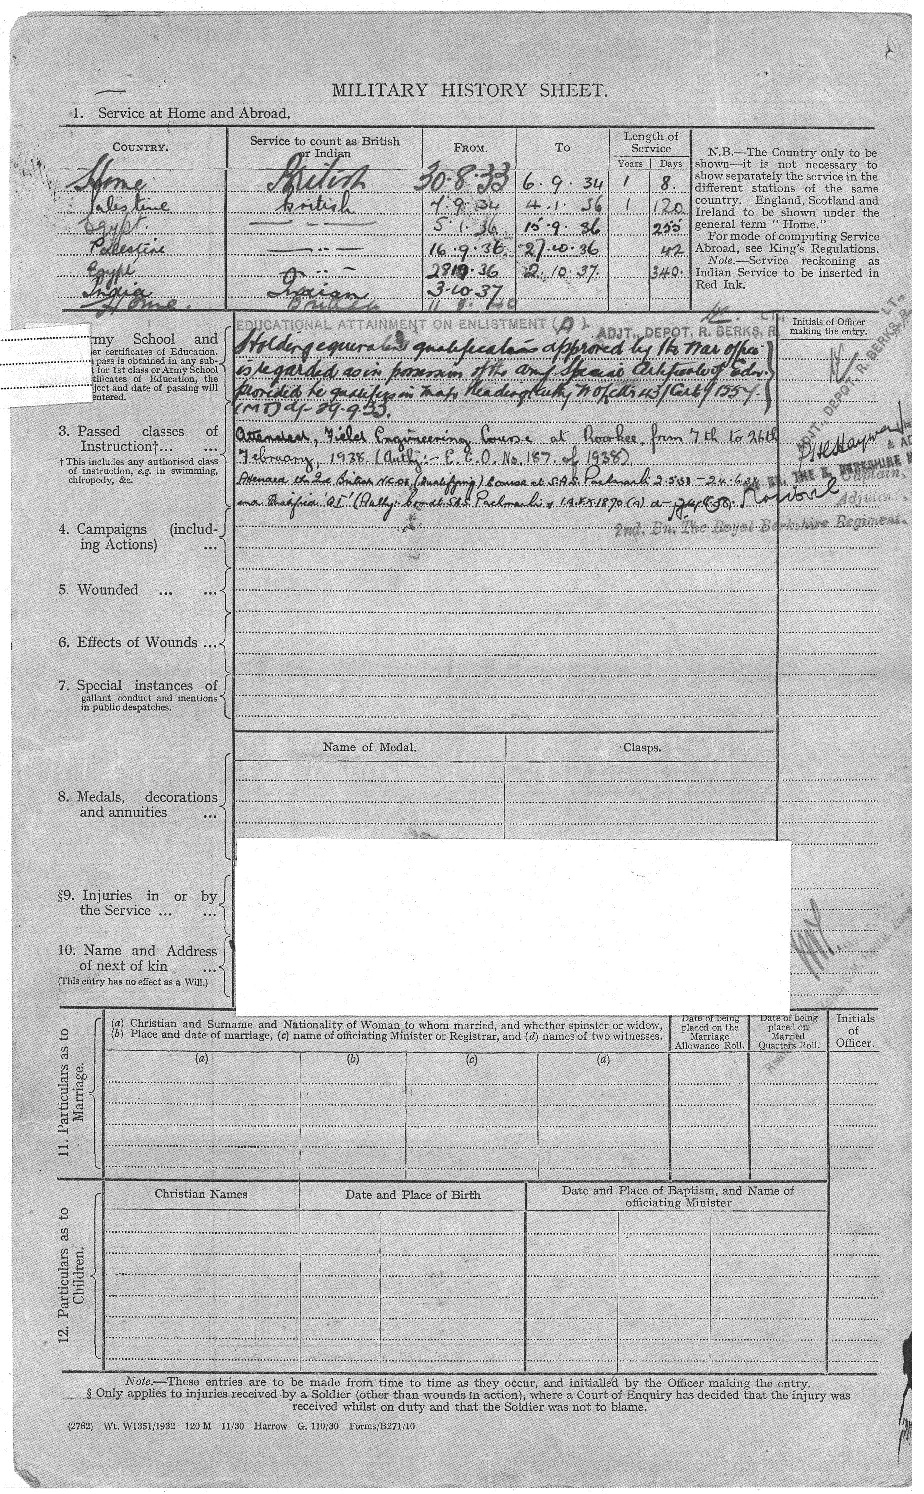 MILITARY HISTORY SHEET.
1. Service at Home and Abroad.
COUNTRY. Service to count as British or Indian FROM. TO Length of Service Years Days
Home British 30.8.33 6.9.34 1 8.
Palestine British 7.9.34 4.1.36 1 120
Egypt. —〃— 5.1.36 15.9.36 255
Palestine —〃— 16.9.36 27.10.36 42
Egypt —〃— 28.10.36 2.10.37. 340.
India Indian 3.10.37
Home
N.B.—The Country only to be
shown—it is not necessary to
show separately the service in the
different stations of the same
country. England, Scotland and
Ireland to be shown under the
general term "Home."
For mode of computing Service
Abroad, see King's Regulations.
Note.—Service reckoning as
Indian Service to be inserted in
Red Ink.
my School and
er certificates of Education.
pass is obtained in any sub-
t for 1st class or Army School
tificates of Education, the
ject and date of passing will
entered.
EDUCATIONAL ATTAINMENT ON ENLISTMENT (A).
ADJT., DEPOT, R. BERKS. R.
Holding equivalent qualifications approved by the War Office
is regarded as in possession of the Army Special Certificate of Edn.
provided he qualifies in map reading.
29.9.33.
Initials of Officer
making the entry.
ADJT., DEPOT, R. BERKS. R.
3. Passed classes of
Instruction†... ...
† This includes any authorised class
of instruction, e.g. in swimming,
chiropody, &c.
Attended, Field Engineering Course at Roorkee, from 7th to 26th
February, 1938. (Auth:- E.E.O. No. 187. of 1938)
Captain,
Adjutant,
2nd. Bn. The Royal Berkshire Regiment.
4. Campaigns (includ-
ing Actions) ...
5. Wounded ... ...
6. Effects of Wounds ...
7. Special instances of
gallant conduct and mentions
in public despatches.
Name of Medal. Clasps.
8. Medals, decorations
and annuities ...
§9. Injuries in or by
the Service ... ...
10. Name and Address
of next of kin ...
(This entry has no effect as a Will.)
11. Particulars as to Marriage.
(a) Christian and Surname and Nationality of Woman to whom married, and whether spinster or widow,
(b) Place and date of marriage, (c) name of officiating Minister or Registrar, and (d) names of two witnesses.
Date of being placed on the Marriage Allowance Roll.
Date of being placed on Married Quarters Roll.
Initials of Officer.
(a) (b) (c) (d)
12. Particulars as to Children.
Christian Names Date and Place of Birth Date and Place of Baptism, and Name of officiating Minister
Note.—These entries are to be made from time to time as they occur, and initialled by the Officer making the entry.
§ Only applies to injuries received by a Soldier (other than wounds in action), where a Court of Enquiry has decided that the injury was
received whilst on duty and that the Soldier was not to blame.
(2762) Wt. W1351/1932 120 M 11/30 Harrow G. 110/30 Forms/B271/10